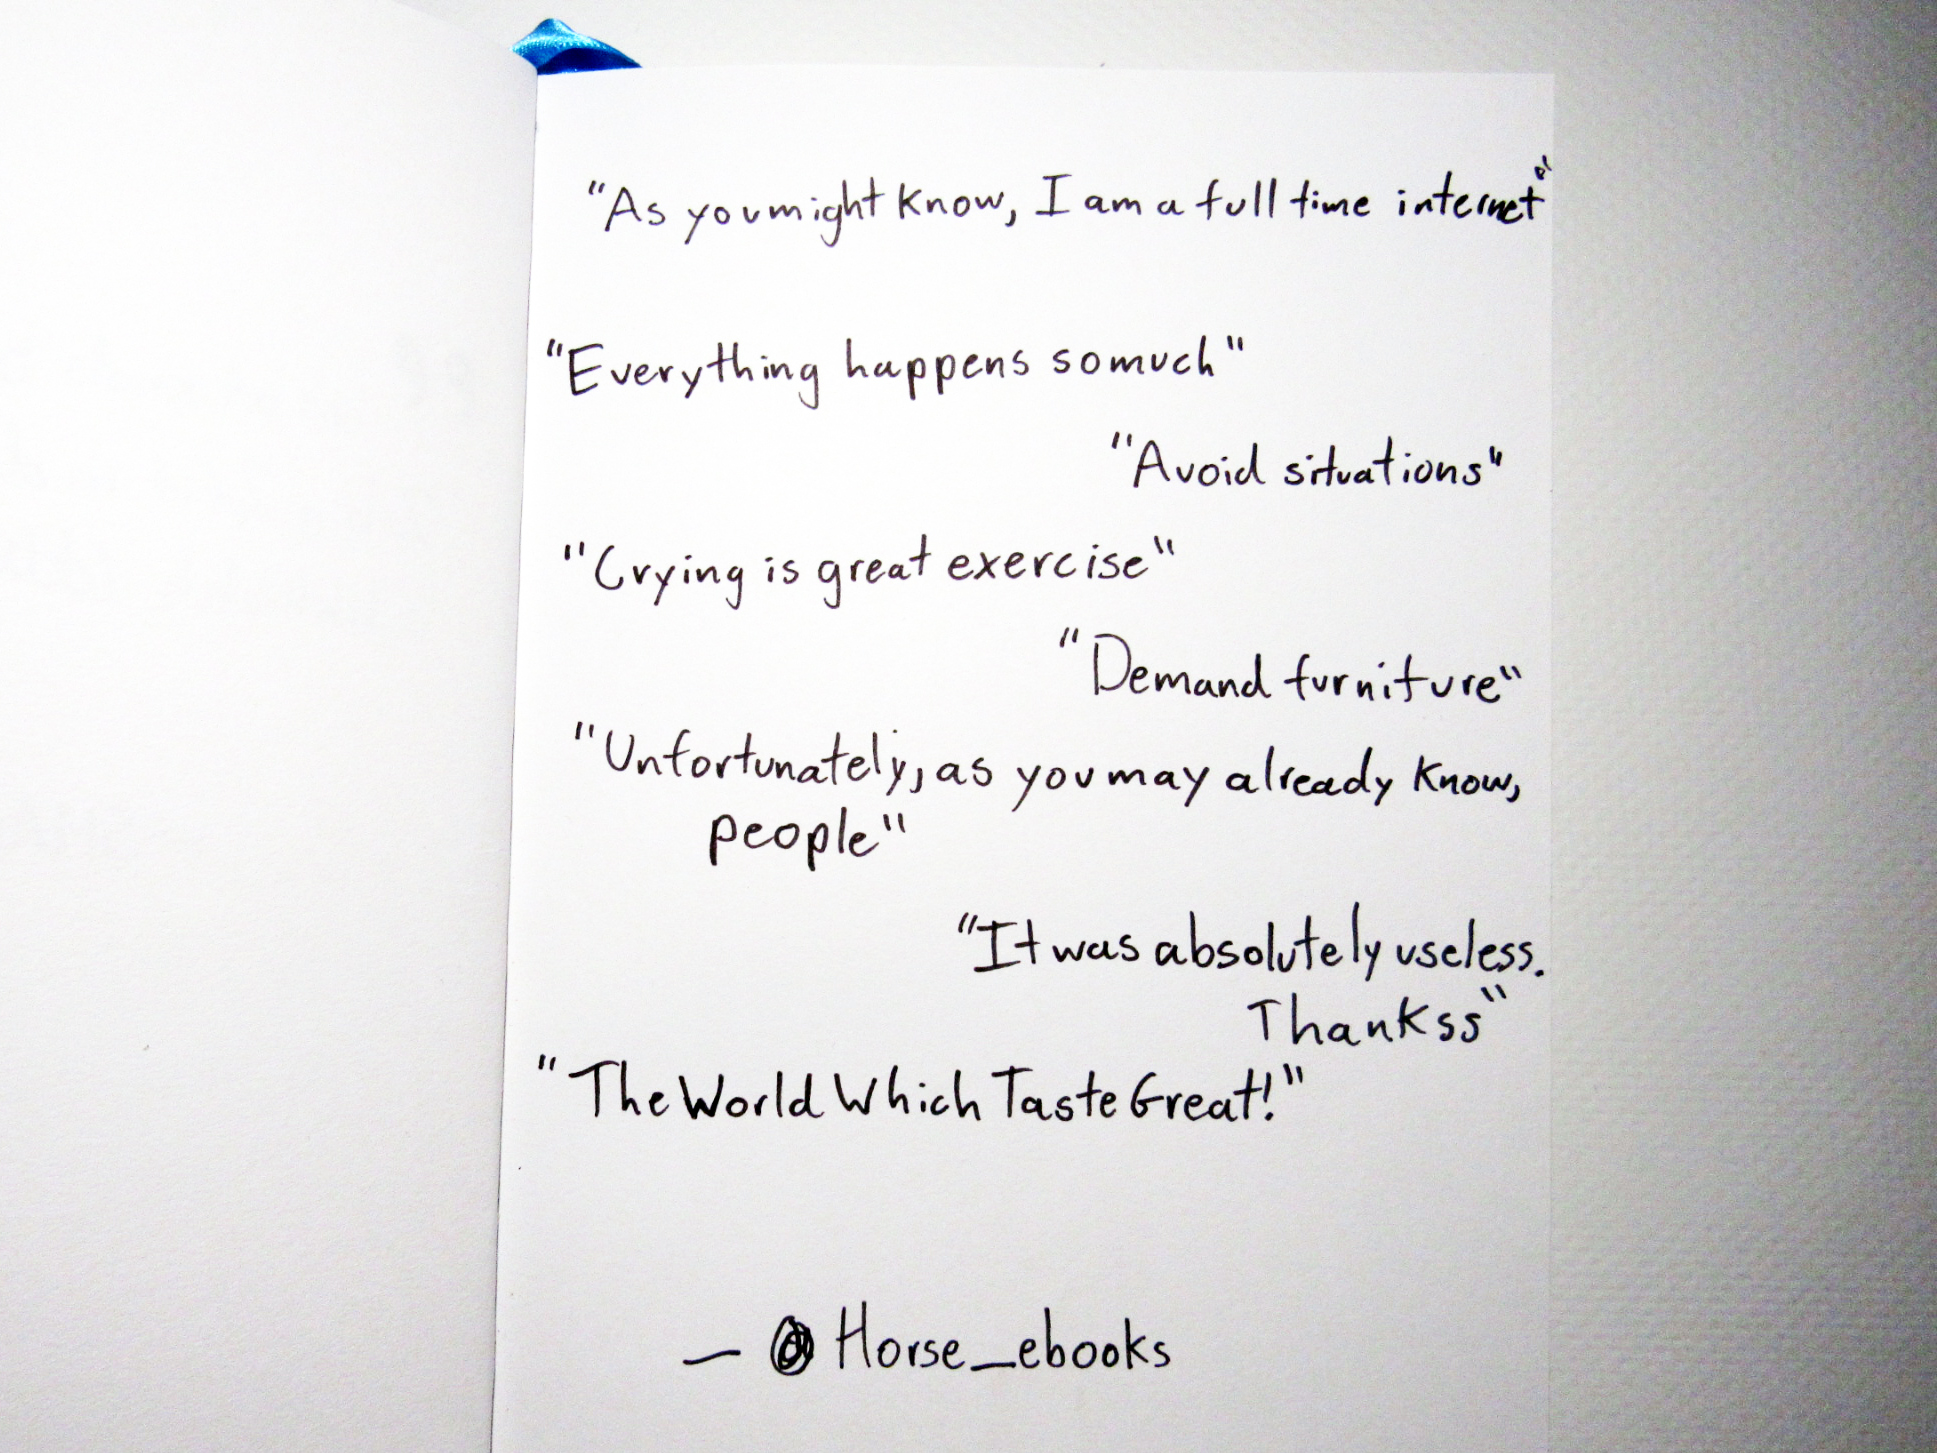 "As you might know, I am a full time internet"
"Everything happens so much"
"Avoid situations"
"Crying is great exercise"
"Demand furniture"
"Unfortunately, as you may already know,
people"
"It was absolutely useless.
Thankss"
"The World Which Taste Great!"
— @Horse_ebooks